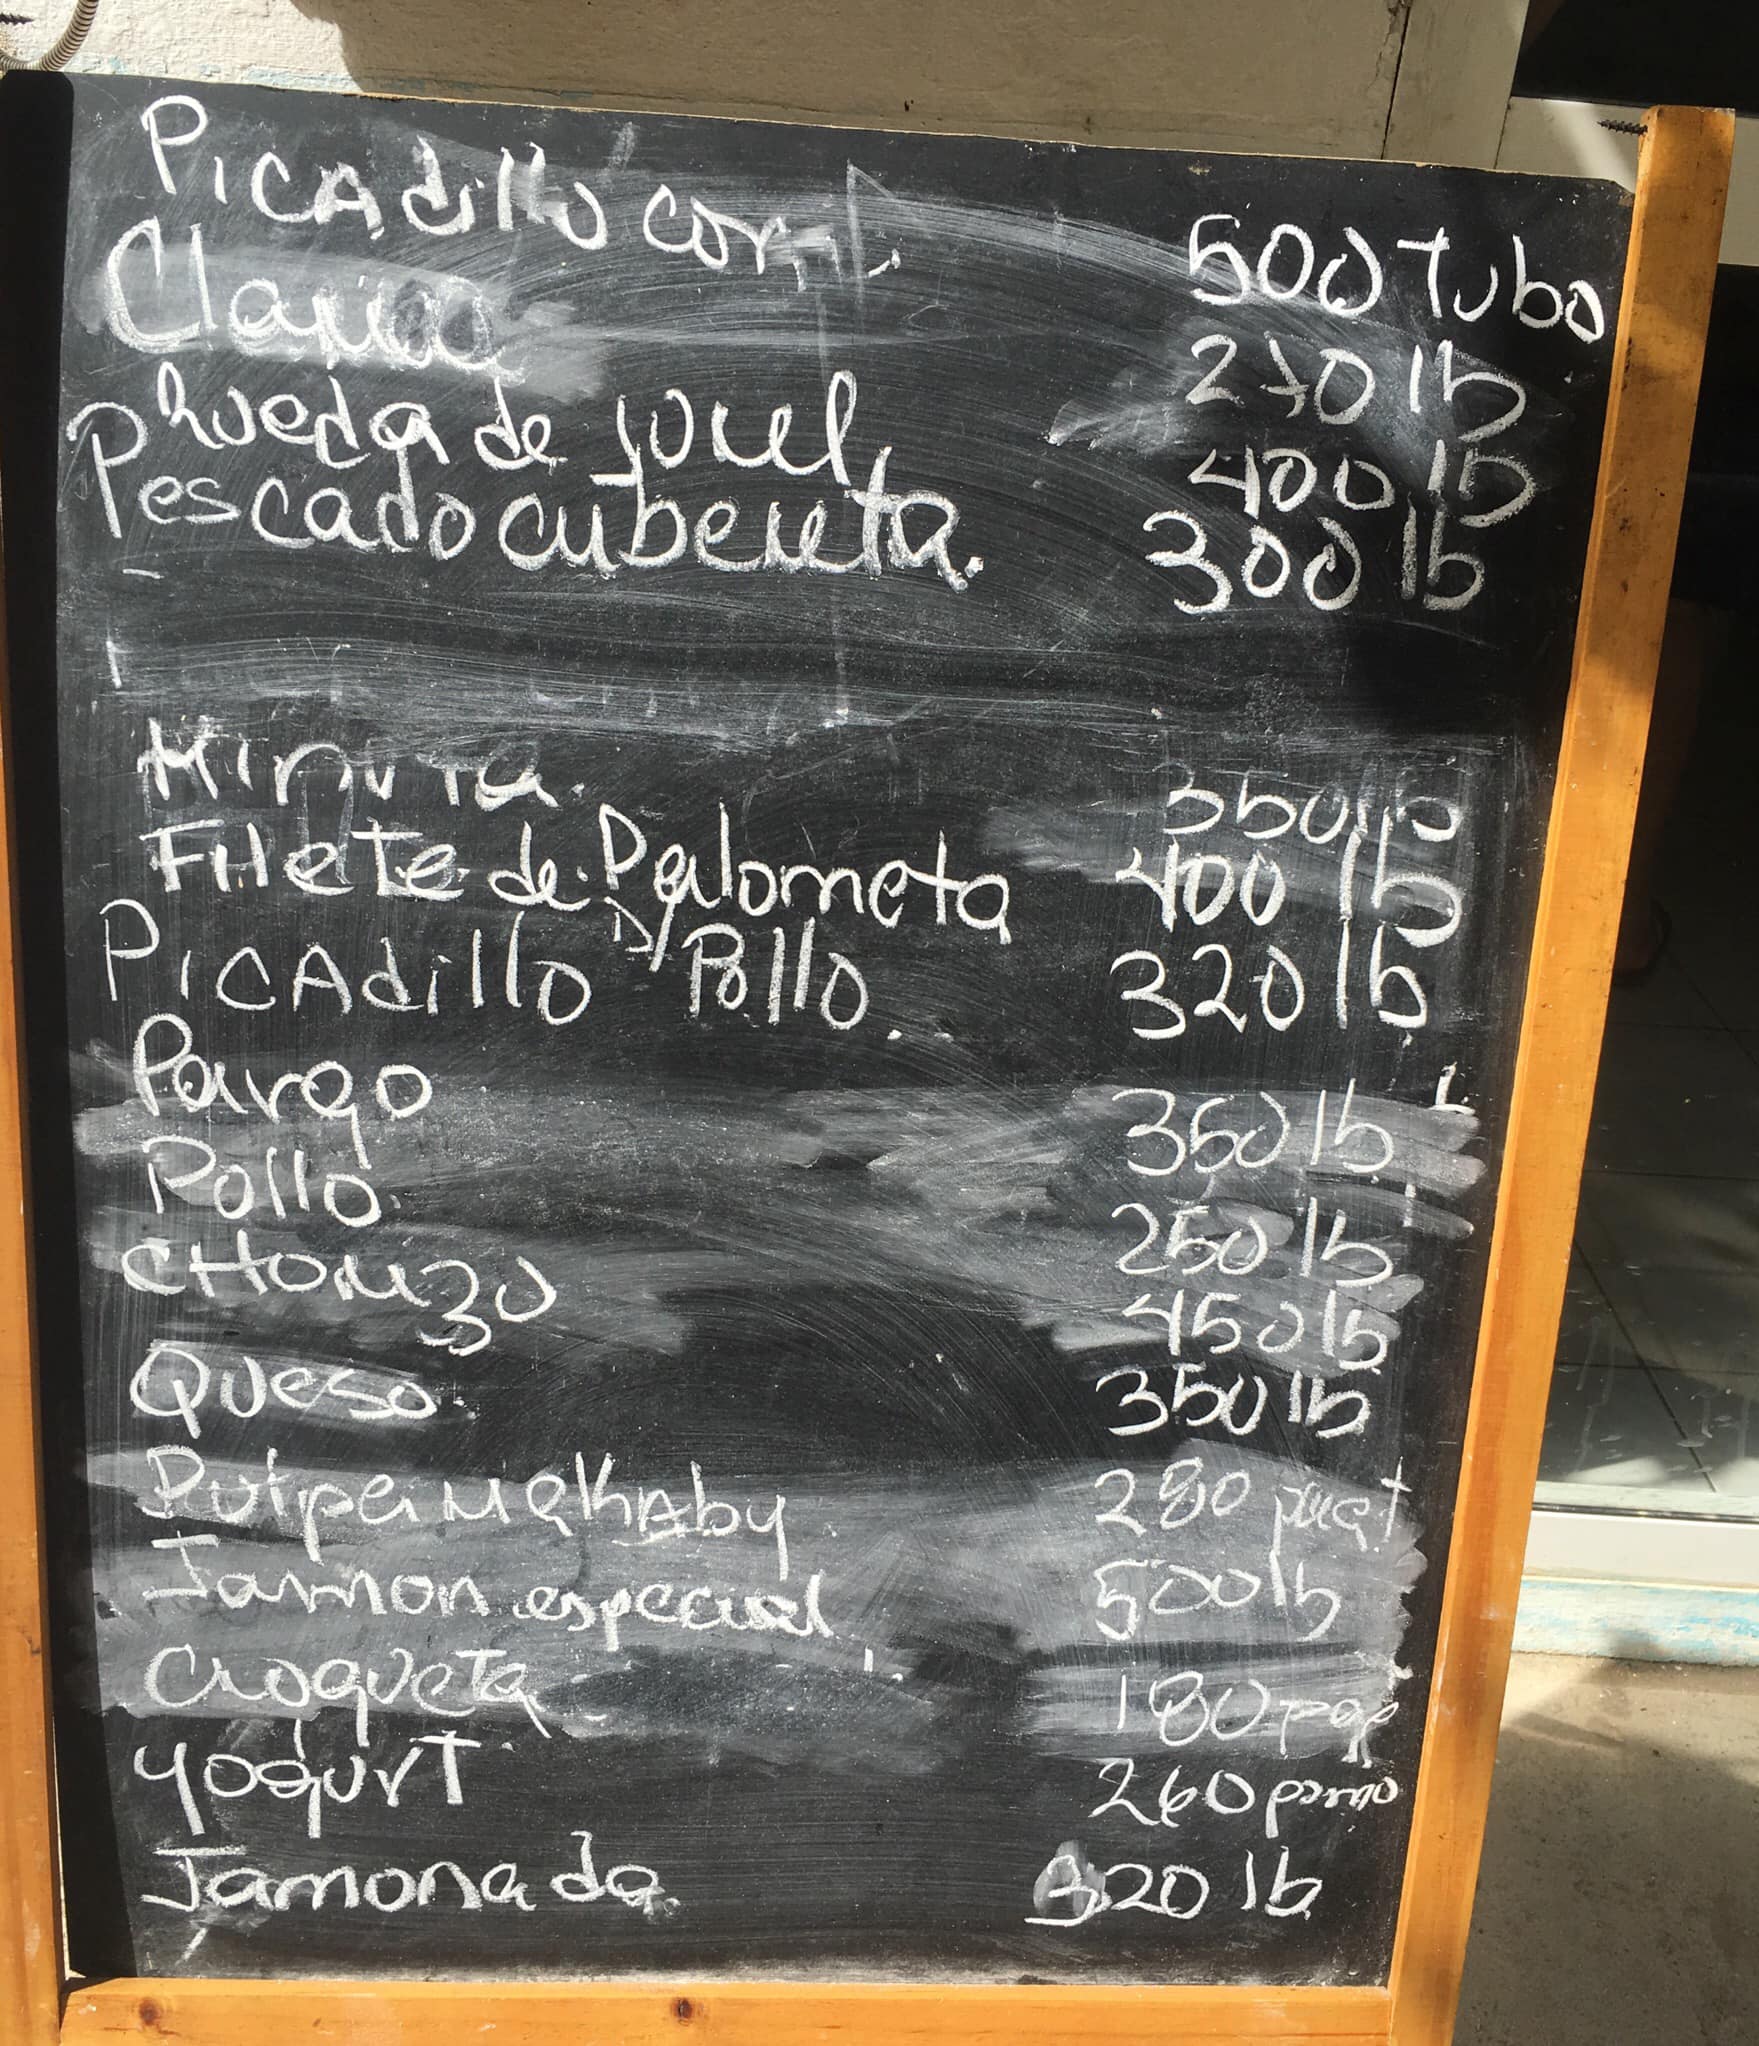 Picadillo con 500 Tubo
Claria 270 lb
Rueda de jurel 400 lb
Pescado cubereta. 300 lb
Minuta. 350 lb
Filete de Palometa 400 lb
Picadillo D/ Pollo 320 lb
Pargo 350 lb
Pollo. 250 lb
CHORIZO 450 lb
Queso. 350 lb
280
Jamon especial 500 lb
Croqueta 180 paq
Yogurt 260 pomo
Jamonada. 320 lb